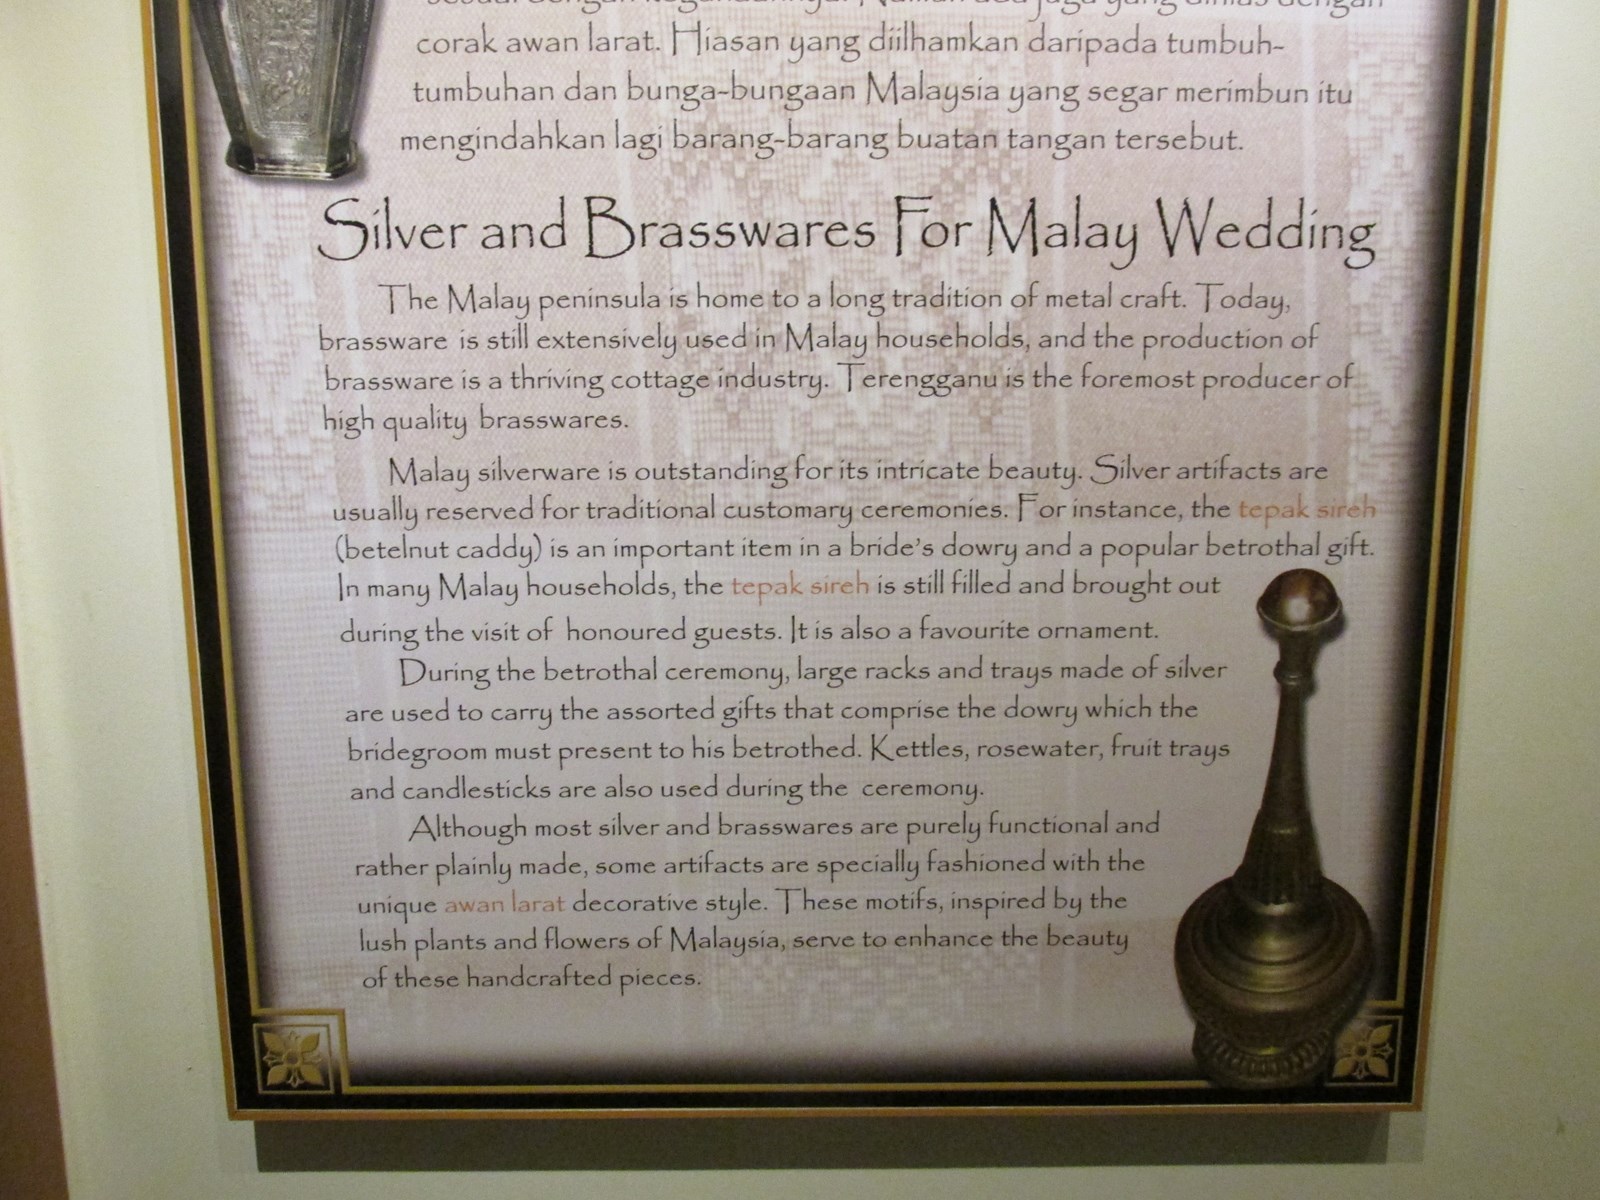 corak awan larat. Hiasan yang diilhamkan daripada tumbuh-
tumbuhan dan bunga-bungaan Malaysia yang segar merimbun itu
mengindahkan lagi barang-barang buatan tangan tersebut.
Silver and Brasswares For Malay Wedding
The Malay peninsula is home to a long tradition of metal craft. Today,
brassware is still extensively used in Malay households, and the production of
brassware is a thriving cottage industry. Terengganu is the foremost producer of
high quality brasswares.
Malay silverware is outstanding for its intricate beauty. Silver artifacts are
usually reserved for traditional customary ceremonies. For instance, the tepak sireh
(betelnut caddy) is an important item in a bride's dowry and a popular betrothal gift.
In many Malay households, the tepak sireh is still filled and brought out
during the visit of honoured guests. It is also a favourite ornament.
During the betrothal ceremony, large racks and trays made of silver
are used to carry the assorted gifts that comprise the dowry which the
bridegroom must present to his betrothed. Kettles, rosewater, fruit trays
and candlesticks are also used during the ceremony.
Although most silver and brasswares are purely functional and
rather plainly made, some artifacts are specially fashioned with the
unique awan larat decorative style. These motifs, inspired by the
lush plants and flowers of Malaysia, serve to enhance the beauty
of these handcrafted pieces.